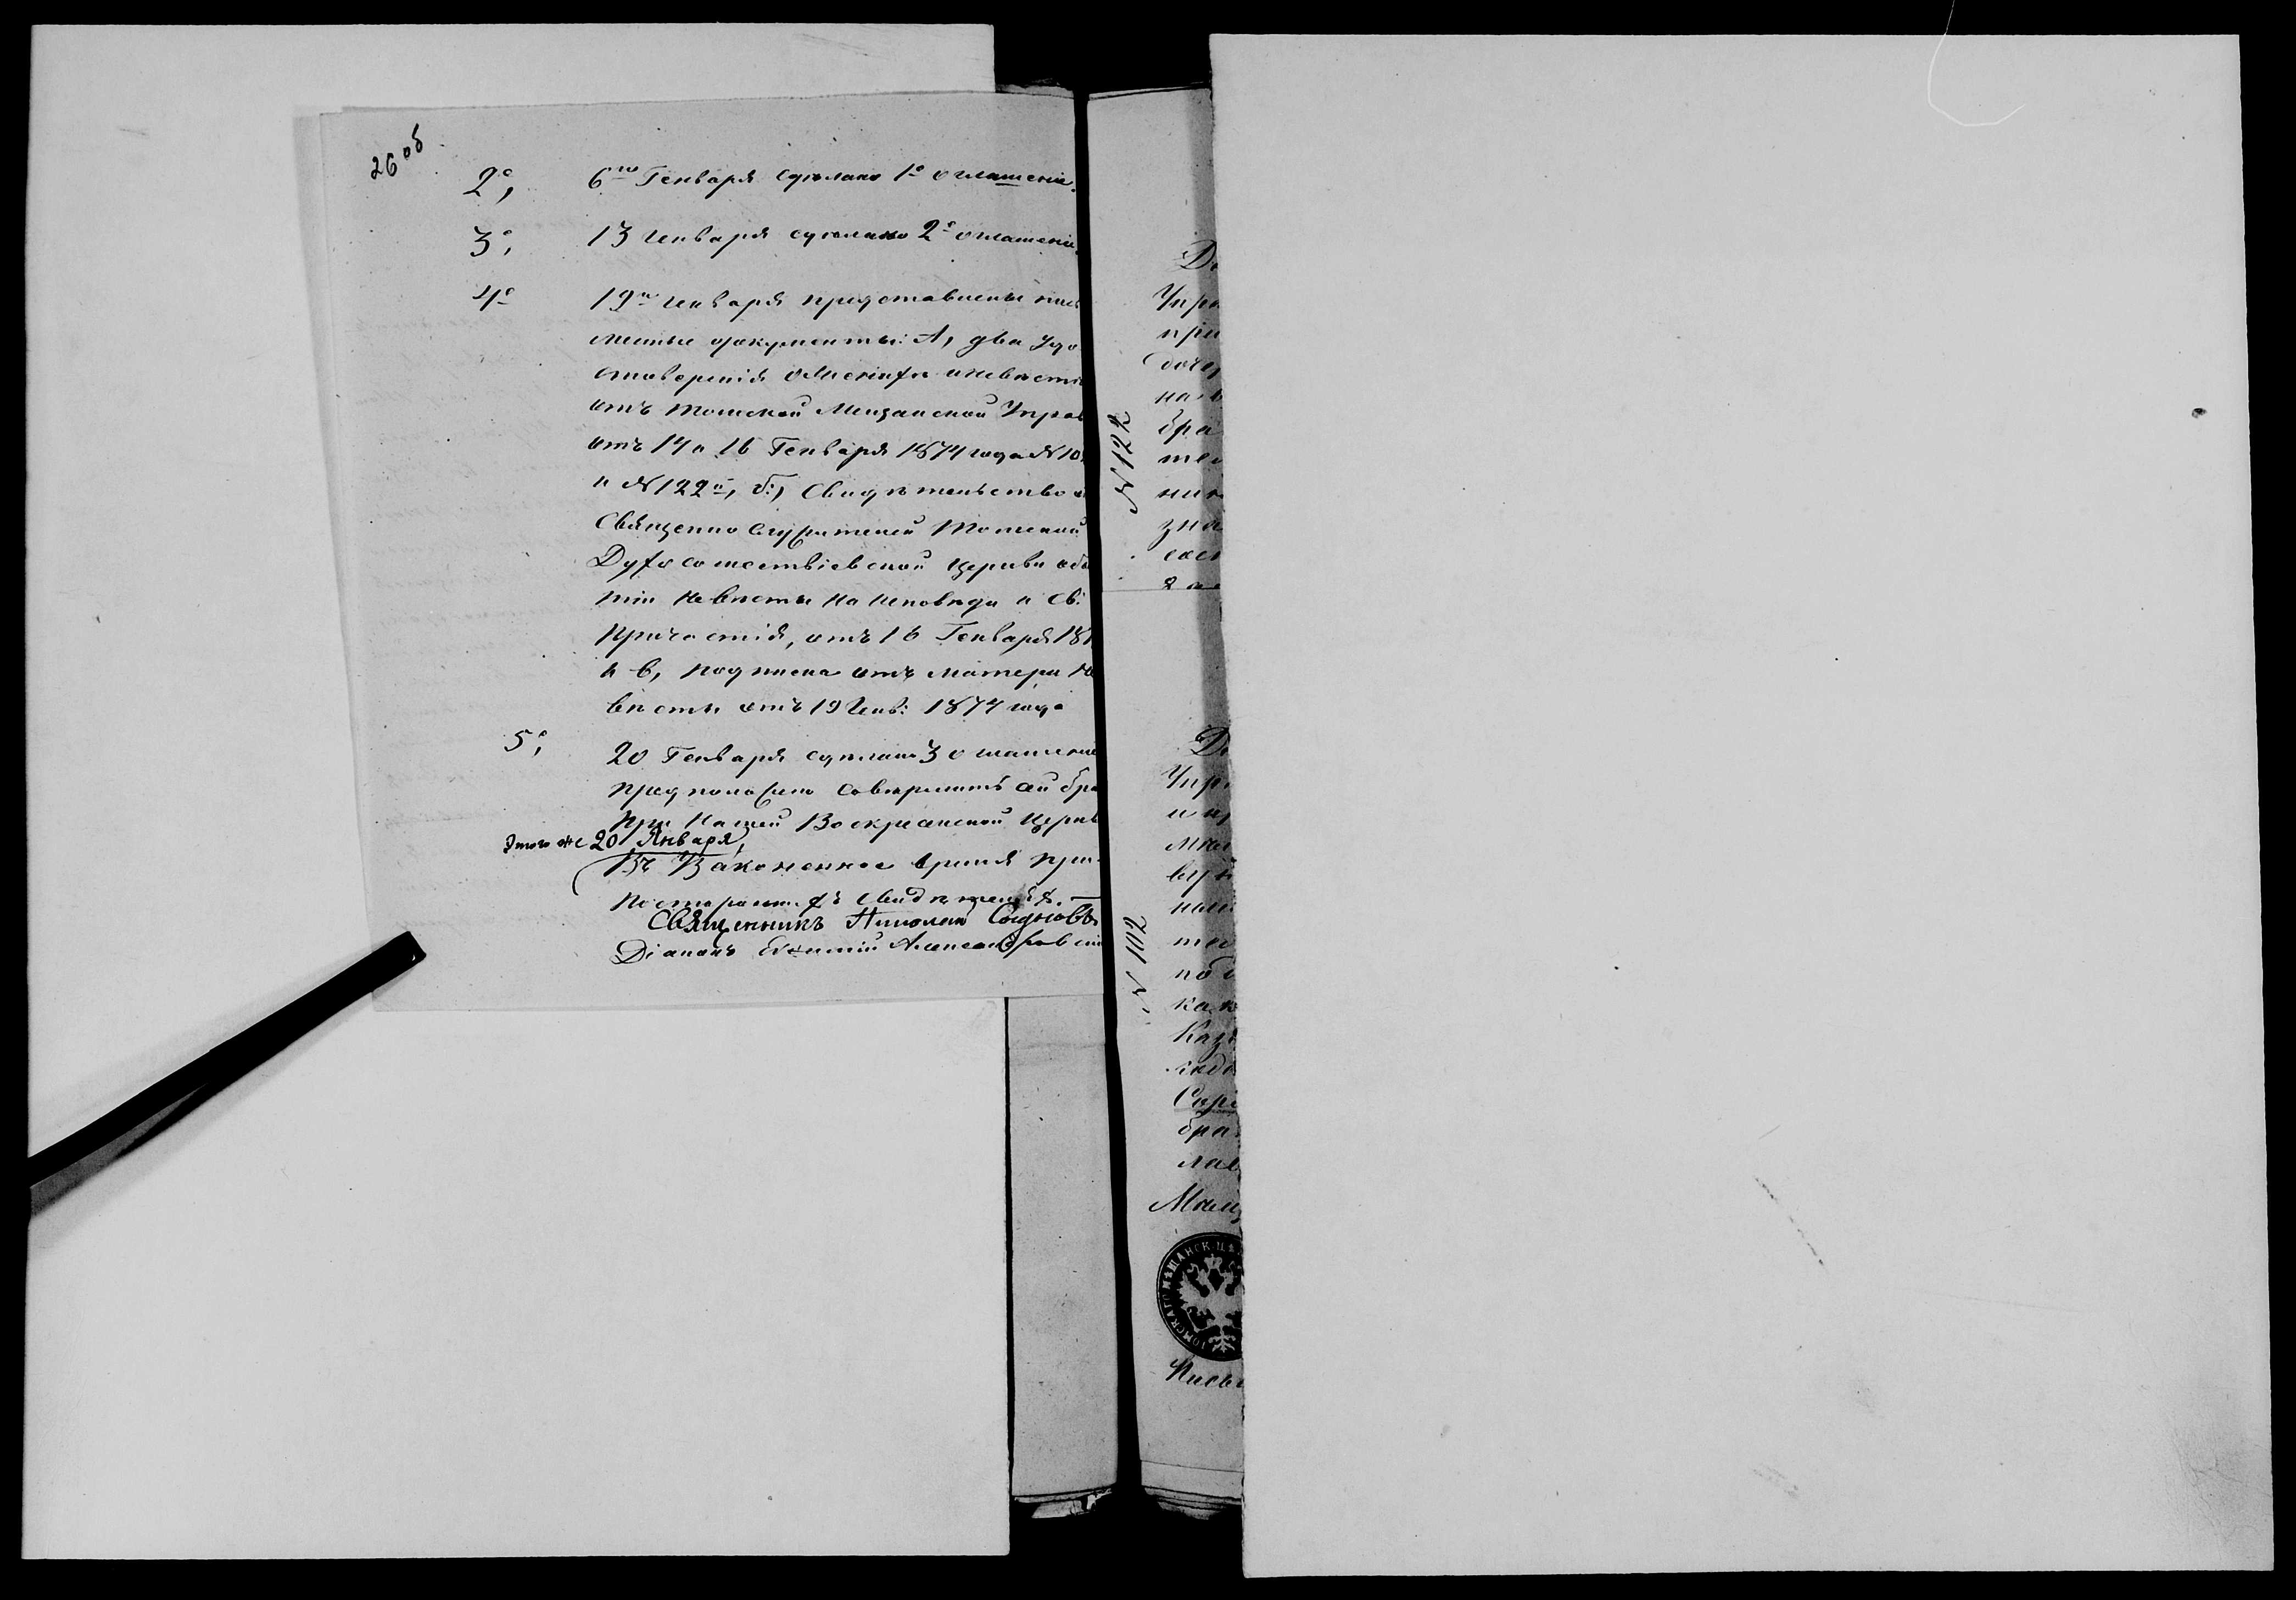 26 об
2е, 6го Генваря сдѣлано 1е оглашеніе.
3е, 13 Генваря сдѣлано 2е оглашеніе,
4е 19го Генваря представлены пись
менные документы: А, два Удо
стоверенія о Женихѣ и невѣстѣ
отъ Томской Мещанской Управ
отъ 14 и 16 Генваря 1874 года №10
и №122й, б:, Свидѣтельство
Священно служителей Томской
Духо сошествіевской Церкви о бы
тіи Невѣсты на исповѣди и Св:
Причастія, отъ 16 Генваря 18
и в, подписка отъ матери Не
вѣсты отъ 19 Генв: 1874 года
5е, 20 Генваря сдѣлано 3 оглашеніе
предположено совершить сей бра
при Нашей Воскресенской Церкв
Этого же 20 Января,
Въ Узаконенное время при
постороннихъ свидѣтеляхъ. —
Священникъ Николай
Діаконъ Евѳимій
До
Упра
при
доче
на
бра
те
ник
зна
сос
№ 122
До
Упр
и пр
меш
вну
наш
те
по
как
Каз
года
бра
лав
№ 102
Мещ
ТОМСКАГО МѢЩАНСК ЦѢ
Пись